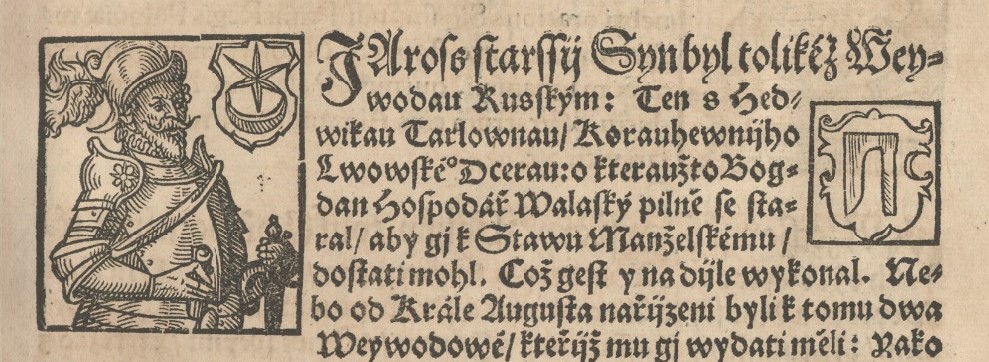 JAross starssij Syn byl tolikéž Wey⸗
wodau Rusským: Ten s Hed⸗
wikau Tarlownau/ Korauhewnijho
Lwowské° Dcerau: o kteraužto Bog⸗
dan Hospodář Walaský pilně se sta⸗
ral/ aby gj k Stawu Manželskému/
dostati mohl. Což gest y na díjle wykonal. Ne⸗
bo od Krále Augusta nařijzeni byli k tomu dwa
Weywodowé/ kteřijž mu gj wydati měli: Yako